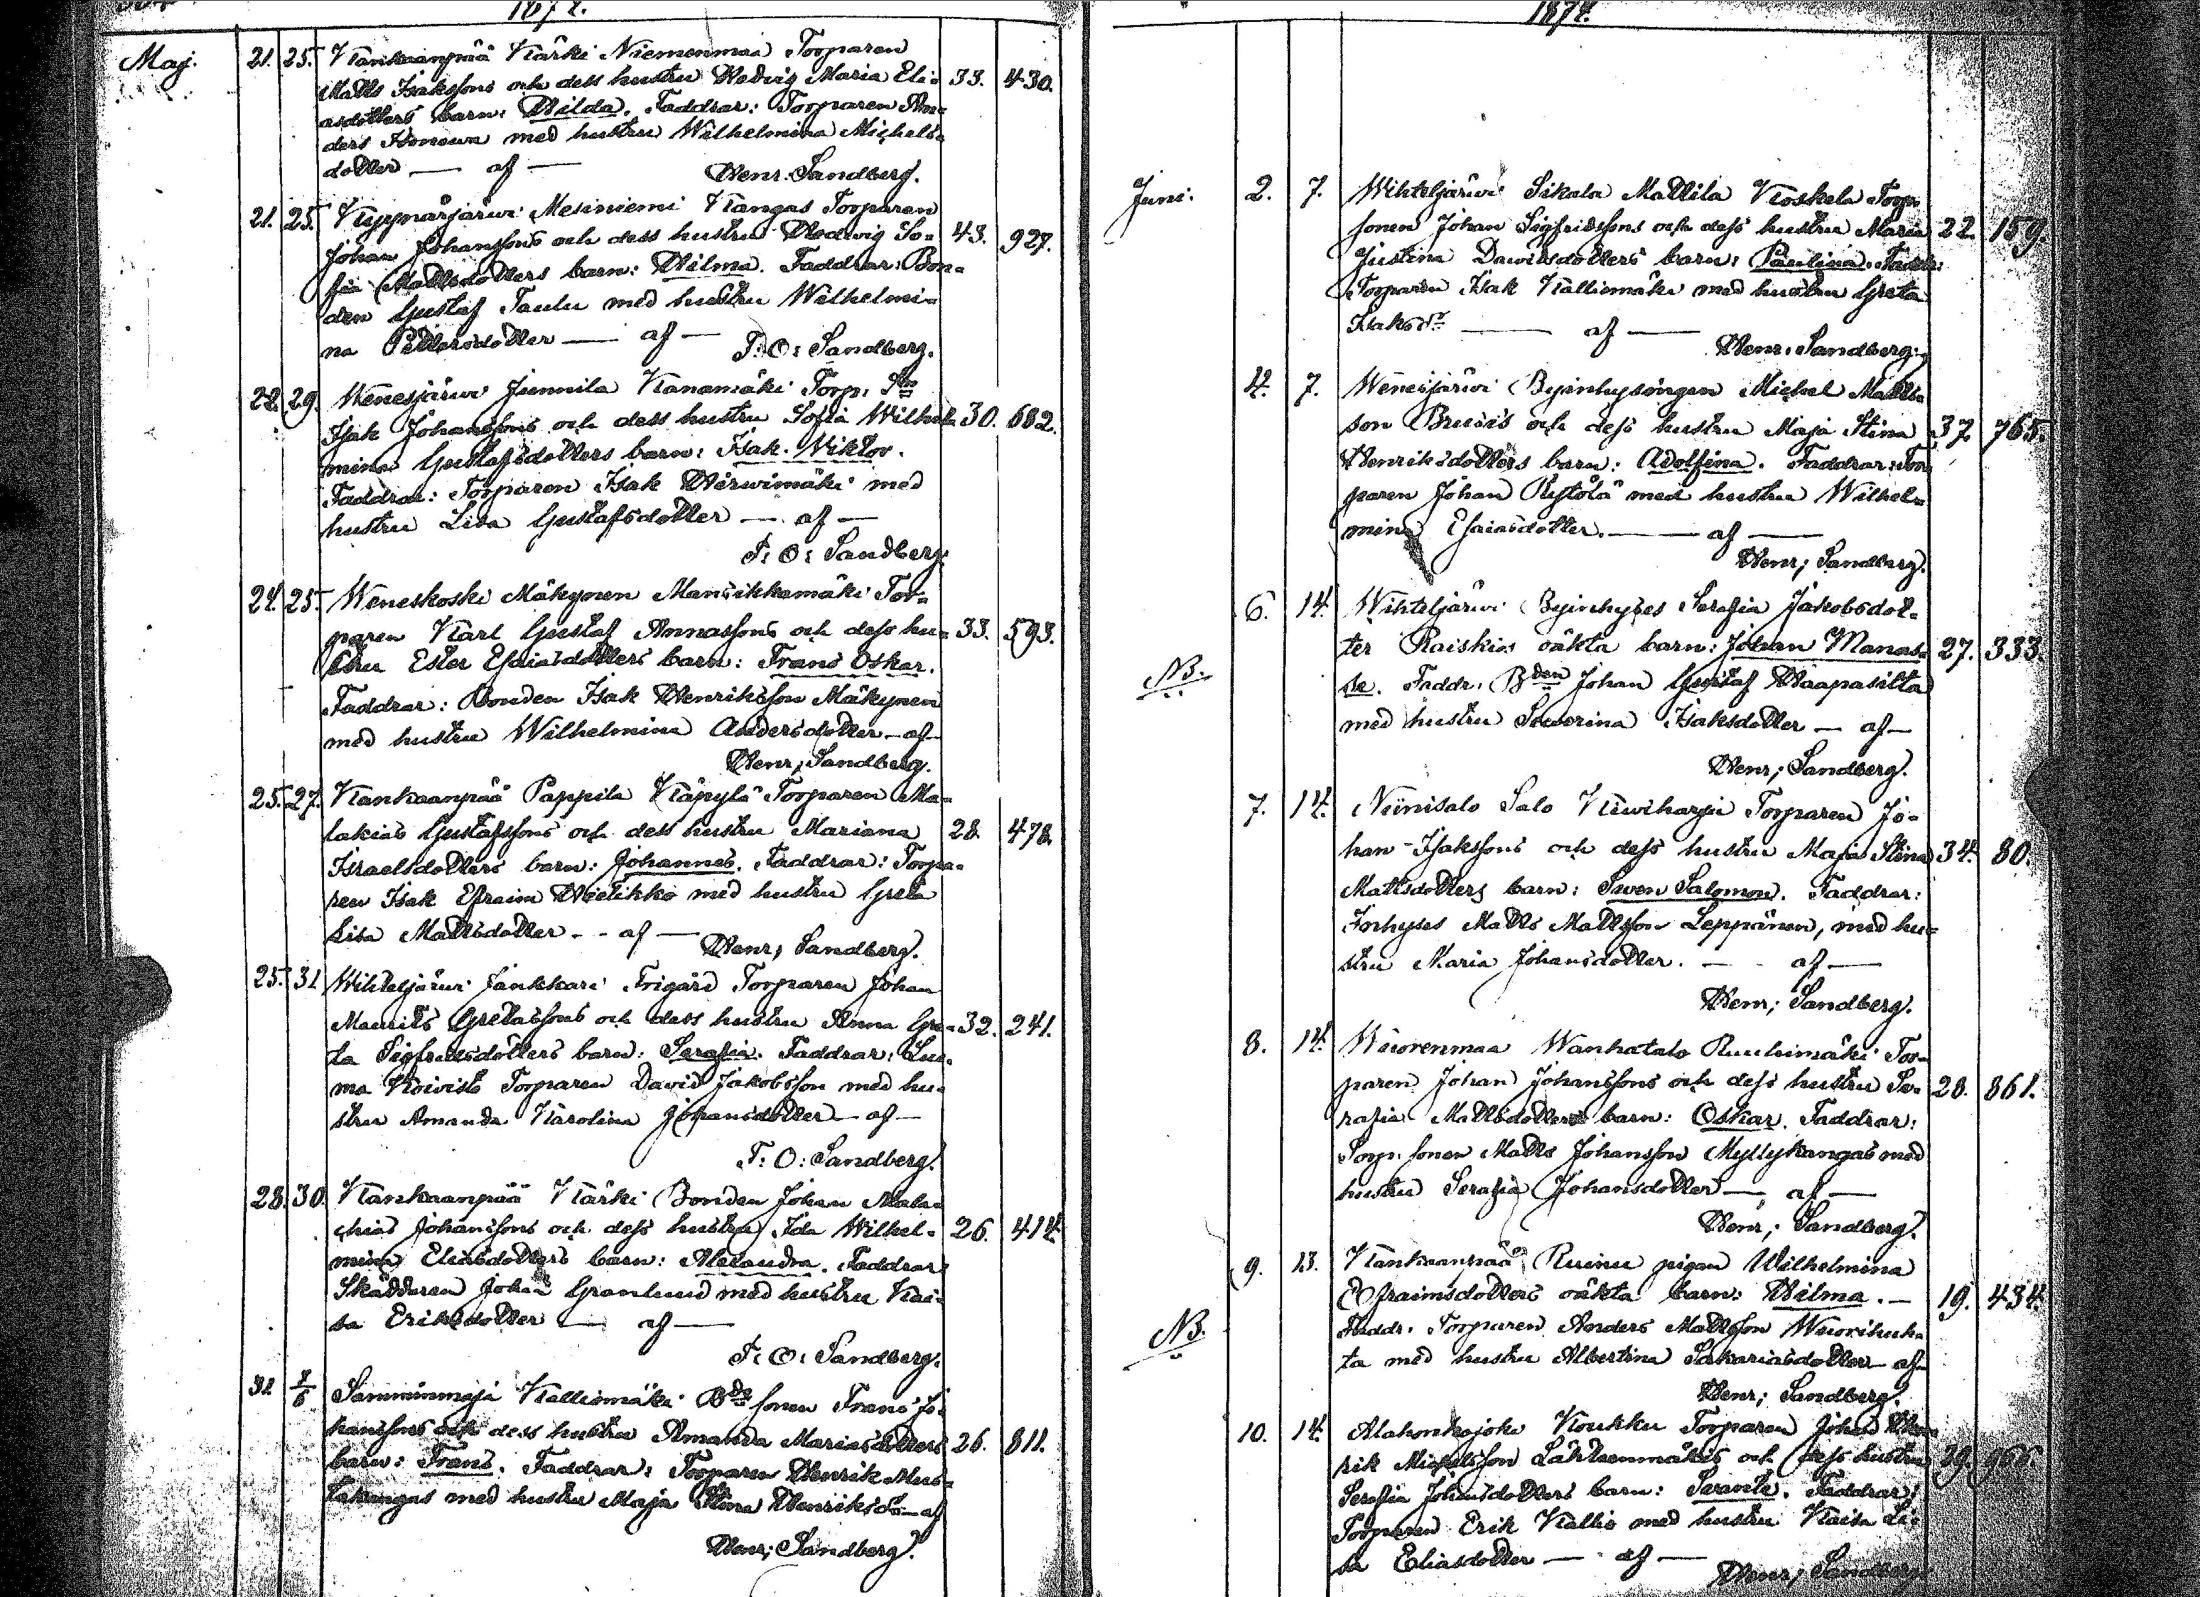 1874.
Maj. 21. 25. Kankaanpää Kärki Niemenmaa Torparen
Matts Isakssons och dess hustru Hedvig Maria Eli- 33. 430.
asdotters barn: Hilda. Faddrar: Torparen An-
ders Honowa med hustru Wilhelmina Michels-
dotter — af —
Henr: Sandberg.
21. 25. Kyynärjärwi Mesiniemi Kangas Torparen
Johan Johanssons och dess hustru Hedwig So- 43. 927.
fia Mattsdotters barn: Hilma. Faddrar: Bon-
den Gustaf Taulu med hustru Wilhelmi-
na Pettersdotter — af —
F: O: Sandberg.
22. 29. Wenesjärwi Junnila Kanamäki Torp. Sn
Isak Johanssons och dess hustru Sofia Wilhel- 30. 682.
mina Gustafsdotters barn: Isak Wiktor.
Faddrar: Torparen Isak Hirwimäki med
hustru Lisa Gustafsdotter — af —
F: O: Sandberg.
24. 25. Weneskoski Mäkynen Mansikkamäki Tor-
paren Karl Gustaf Annassons och dess hu- 33. 593.
stru Ester Esaiasdotters barn: Frans Oskar.
Faddrar: Bonden Isak Henriksson Mäkynen
med hustru Wilhelmina Andersdotter — af —
Henr; Sandberg.
25. 27. Kankaanpää Pappila Käpylä Torparen Ma-
lakias Gustafssons och dess hustru Mariana 28. 478.
Israelsdotters barn: Johannes. Faddrar: Torpa-
ren Isak Efraim Hietikko med hustru Greta
Lisa Mattsdotter - - af —
Henr; Sandberg.
25. 31 Wihteljärwi Jänkkäri Frigård Torparen Johan
Maurits Gretassons och dess hustru Anna Gre- 32. 241.
ta Sigfredsdotters barn: Serafia. Faddrar: Luo-
ma Koivisto Torparen David Jakobsson med hu-
stru Amanda Karolina Johansdotter — af —
F: O: Sandberg.
28. 30. Kankaanpää Kärki Bonden Johan Mala-
chias Johanssons och dess hustru Ida Wilhel- 26. 414.
mina Eliasdotters barn: Alexandra. Faddrar:
Skäddaren Johan Granlund med hustru Kai-
sa Eriksdotter — af —
F: O: Sandberg.
31 7/6 Samminmaja Kalliomäki Bde sonen Frans Jo-
hanssons och dess hustru Amanda Mariasdotters 26. 811.
barn: Frans. Faddrar: Torparen Henrik Mus-
takangas med hustru Maja Stina Henriksd. — af
Henr; Sandberg.
1874.
Juni. 2. 7. Wihteljärwi Sikala Mattila Koskela Torp.
sonen Johan Sigfridssons och dess hustru Maria 22. 159.
Justina Dawidsdotters barn: Paulina. Faddr:
Torparen Isak Kalliomäki med hustru Greta
Isaksdr — af —
Henr: Sandberg.
4. 7. Wenesjärwi Byinhysingen Michel Matts-
son Brusis och dess hustru Maja Stina 37. 765.
Henriksdotters barn: Adolfina. Faddrar: Tor-
paren Johan Rystölä med hustru Wilhel-
mina Esaiasdotter. — af —
Henr; Sandberg.
6. 14. Wihteljärwi Byinhyses Serafia Jakobsdot-
ter Raiskios oäkta barn: Johan Manas- 27. 333.
NB. se. Faddr. Bden Johan Gustaf Haapasilta
med hustru Sewerina Isaksdotter — af —
Henr; Sandberg.
7. 14. Niinisalo Salo Kiwiharju Torparen Jo-
han Isakssons och dess hustru Maja Stina 34. 80.
Mattsdotters barn: Swen Salomon. Faddrar:
Inhyses Matts Mattsson Leppänen, med hu-
stru Maria Johansdotter. — af —
Henr; Sandberg.
8. 14. Wuorenmaa Wanhatalo Ruuhimäki Tor-
paren Johan Johanssons och dess hustru Se- 28. 861.
rafia Mattsdotters barn: Oskar. Faddrar:
Torp. sonen Matts Johansson Myllykangas med
hustru Serafia Johansdotter — af —
Henr; Sandberg.
9. 13. Kankaanpää Ruinu pigan Wilhelmina
Efraimsdotters oäkta barn: Hilma. — 19. 434.
NB. Faddr. Torparen Anders Mattsson Wuorihuh-
ta med hustru Albertina Sakariasdotter — af —
Henr; Sandberg.
10. 14. Alahonkajoki Koukku Torparen Johan Hen-
rik Michelsson Lähteenmäkis och dess hustru 39. 966.
Serafia Johansdotters barn: Serante. Faddrar:
Torparen Erik Kallio med hustru Kaisa Li-
sa Eliasdotter — af —
Henr; Sandberg